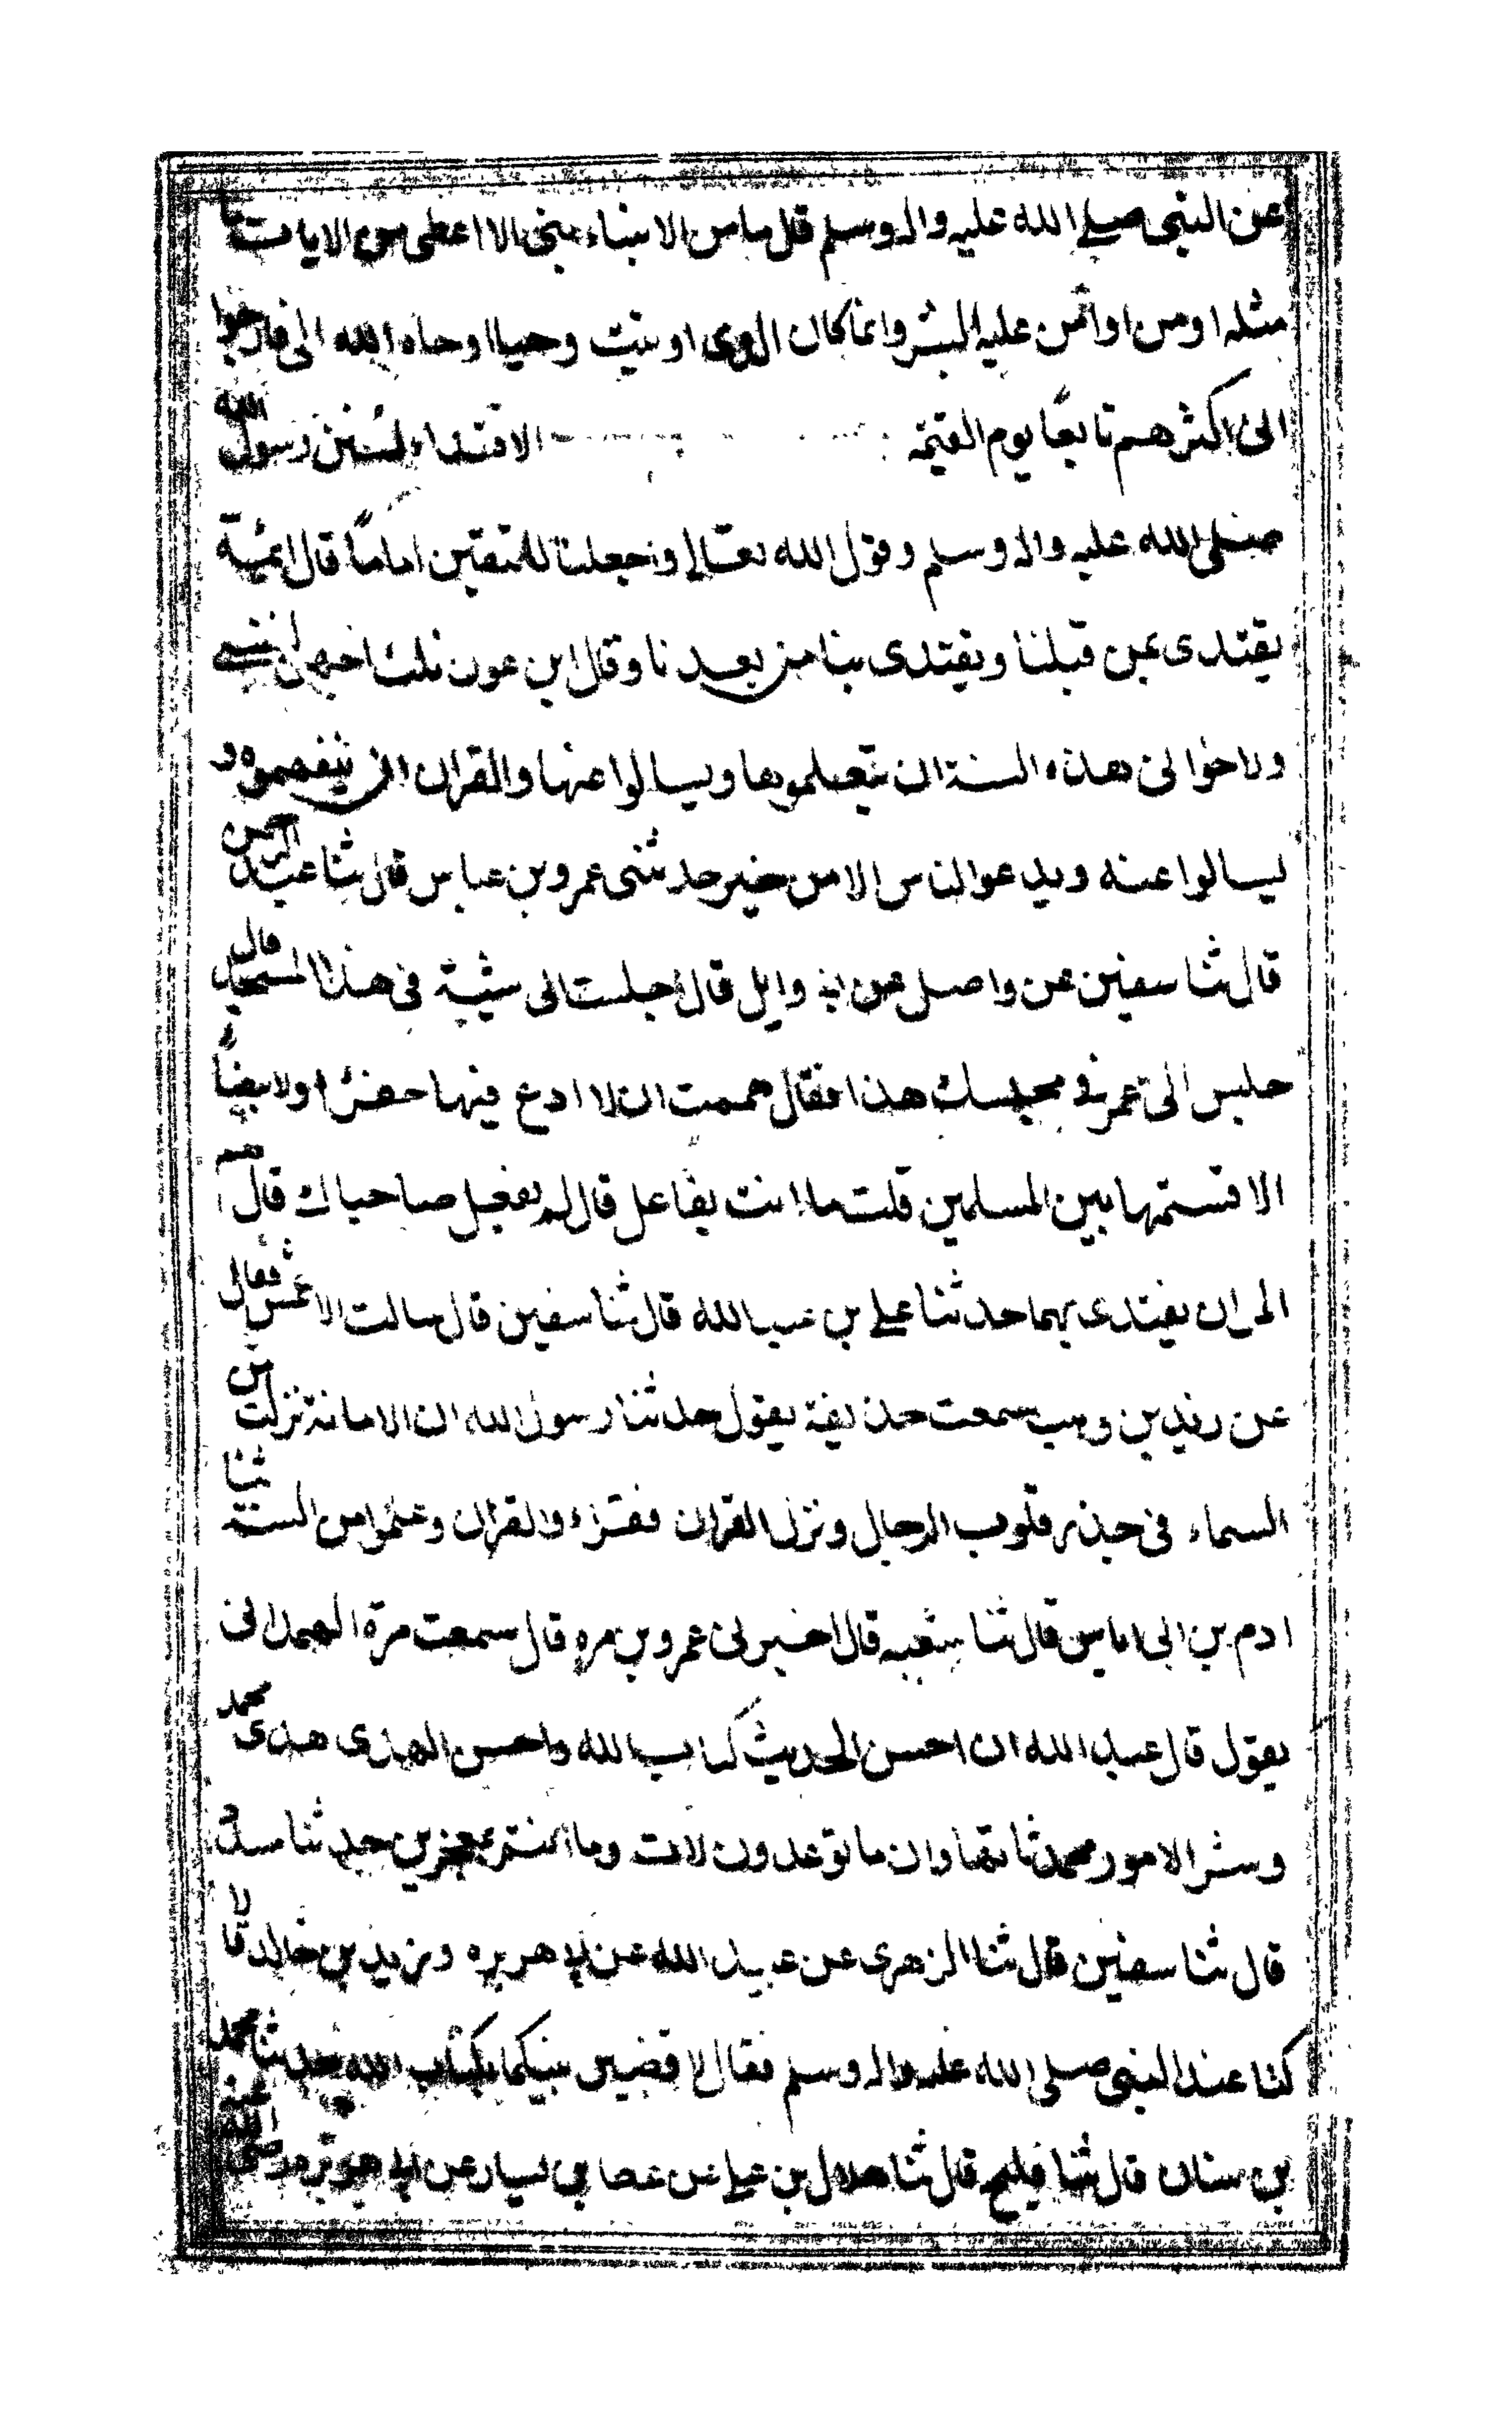 عن النبى صلے الله عليه واله وسلم قال ما من الانبياء نبى الا اعطى من الايات ما
مثله او من او اٰمن عليه البشر وانما كان الذى اوتيت وحيا اوحاه الله الى فارجوا
انى اكثرهم تابعًا يوم القيمة الاقتداء بسنن رسول الله
صلى الله عليه واله وسلم وقول الله تعالے واجعلنا للمتقين امامًا قال ائمة
يقتدى بمن قبلنا ويقتدى بنا من بعدنا وقال ابن عون ثلث احبهن لنفسى
ولاخوانى هذه السنة ان يتعلموها ويسالوا عنها والقران ان يتفهموه و
يسالوا عنه ويدعوا الناس الا من خير حدثنى عمرو بن عباس قال ثنا عبد الرحمن
قال ثنا سفين عن واصل عن ابى وايل قال جلست الى شيبة فى هذا المسجد قال
جلس الى عمر فى مجلسك هذا فقال هممت ان لا ادع فيها صفراء ولا بيضاً
الا قسمتها بين المسلمين قلت ما انت بفاعل قال لم يفعل صاحباك قال هم
المران يقتدى بهما حدثنا علے بن عبد الله قال ثنا سفين قال سالت الاعمش فقال
عن زيد بن وهب سمعت حذيفة يقول حدثنا رسول الله ان الامانة نزلت من
السماء فى جذر قلوب الرجال ونزل القران فقرءوا القران وعلموا من السنة ثنا
ادم بن ابى اياس قال ثنا شعبه قال اخبرنى عمرو بن مره قال سمعت مرة الهمدانى
يقول قال عبد الله ان احسن الحديث كتاب الله واحسن الهدى هدى محمد
وشر الامور محمدثاتها وان ما توعدون لات وما انتم بمعجزين حدثنا مسدد
قال ثنا سفين قال ثنا الزهرى عن عبيد الله عن ابى هريره وزيد بن خالد قالا
كنا عند النبى صلى الله عليه واله وسلم فقال لاقضين بينكما بكتاب الله حدثنا محمد
بن سنان قال ثنا فليح قال ثنا هلال بن علے عن عطا بن يسار عن ابى هريرة رضى الله عنه